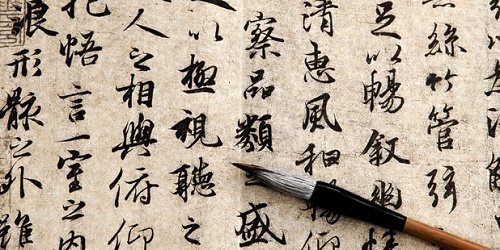 無絲竹管弦
足以暢叙幽
清惠風和暢
察品類之盛
以極視聽之
人之相與俯仰
抱悟言一室之内
浪形骸之外雖